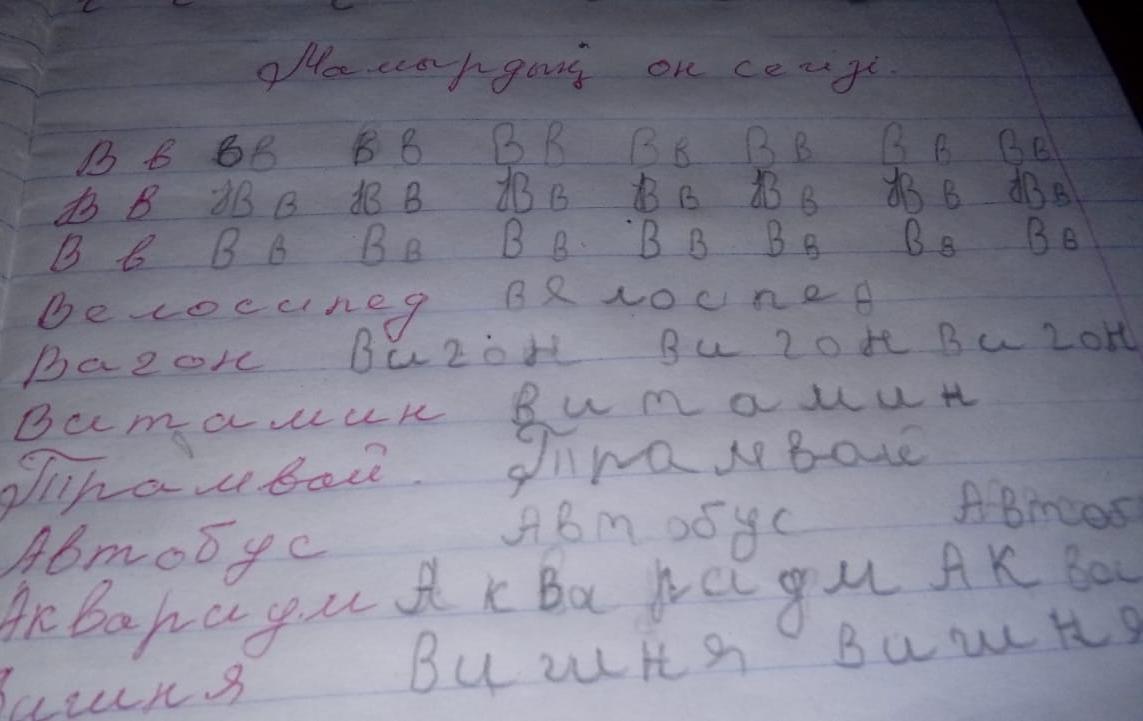 Мамырдың он сегізі.
В в В В В В В В В в В в В в В в
В В В в В В В в В в В в В в В в
В в В в В в В в В В В в В в В в
Велосипед ве лоспед
Вагон Вигон Вигон Вигон
Витамин Витамин
Трамвай. Трамвай
Автобус Автобус Автоб
Аквариум Аквариум АКва
Вишня Вишня вишня